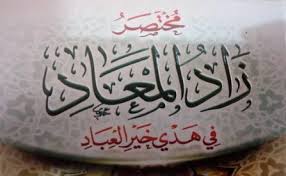 مُخْتَصَرُ
زَادُ المَعَادِ
فِي هَدْيِ خَيْرِ العِبَادِ